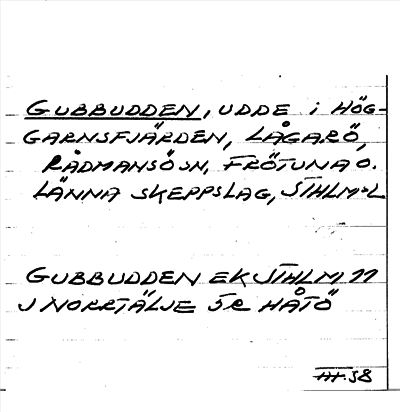 GUBBUDDEN, UDDE i HÖG-
GARNSFJÄRDEN, LÅGARÖ,
RÅDMANSÖ SN, FRÖTUNA O.
LÄNNA SKEPPSLAG, STHLMS L
GUBBUDDEN EK STHLM 77
J NORRTÄLJE 5R HÅTÖ